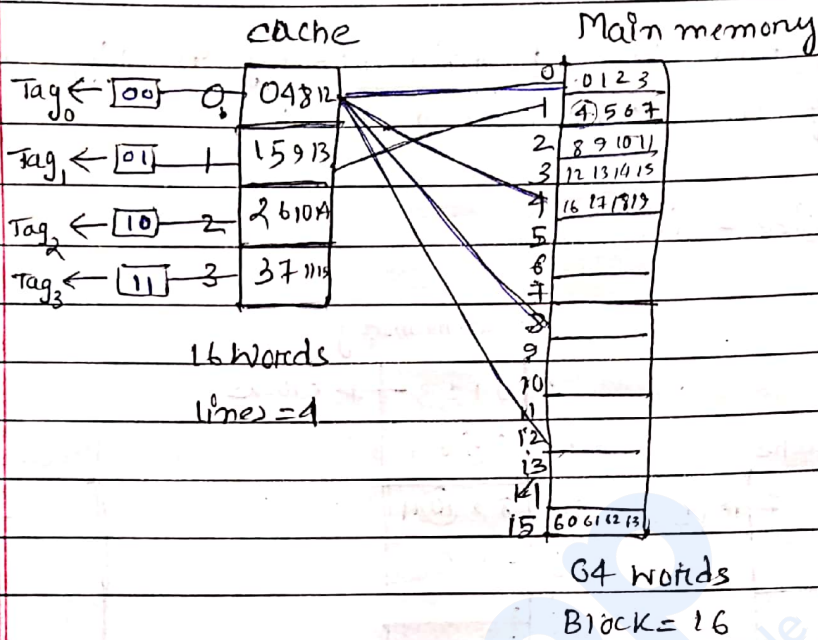 cache Main memory
Tag0 ← 00 0 04812
Tag1 ← 01 1 15913
Tag2 ← 10 2 2610
Tag3 ← 11 3 371115
0 0 1 2 3
1 4 5 6 7
2 8 9 10 11
3 12 13 14 15
4 16 17 18 19
5
6
7
8
9
10
11
12
13
15 60 61 62 63
16 Words
lines = 4
64 Words
Block = 16